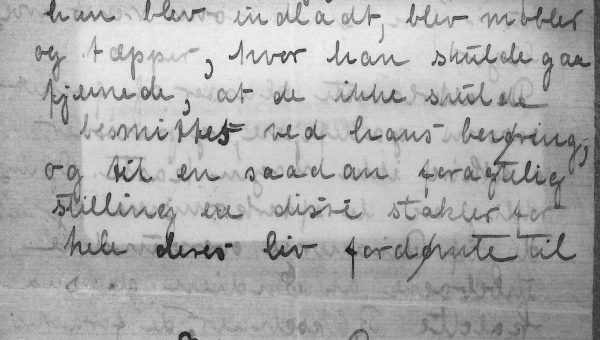 han blev indladt, blev møbler
og tæpper, hvor han skulde gaa
fjernede, at de ikke skulde
besmittes ved hans berøring;
og til en saadan foragtelig
stilling ere disse stakler for
hele deres liv fordømte til